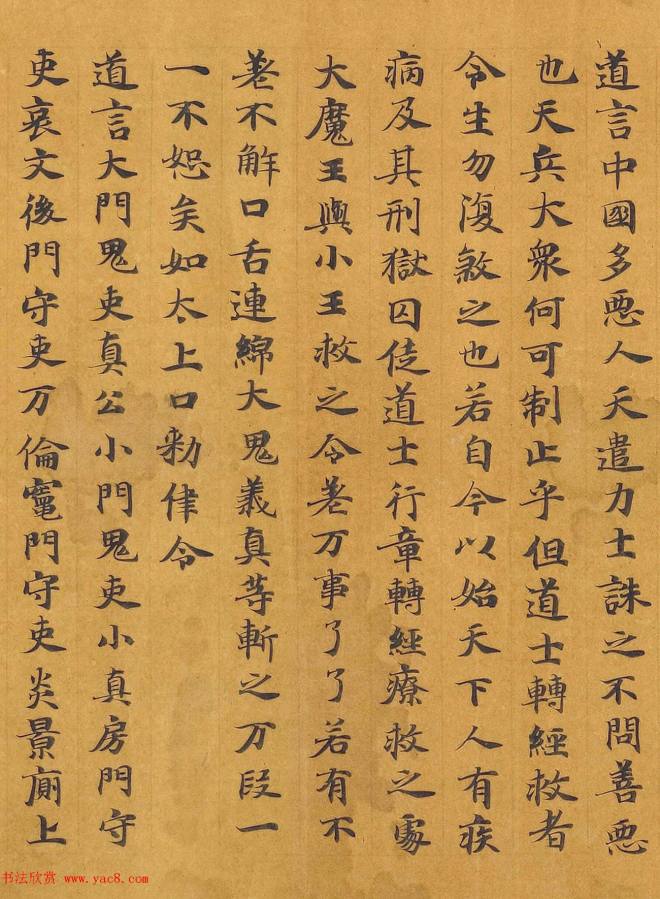 道言中國多惡人天遣力士誅之不問善惡
也天兵大衆何可制止乎但道士轉經救者
令生勿復煞之也若自今以始天下人有疾
病及其刑獄囚徒道士行章轉經療救之處
大魔王與小王救之令差万事了了若有不
差不解口舌連綿大鬼義真等斬之万段一
一不恕矣如太上口勑律令
道言大門鬼吏真公小門鬼吏小真房門守
吏襄文後門守吏万倫竈門守吏炎景廁上
书法欣赏 www.yac8.com